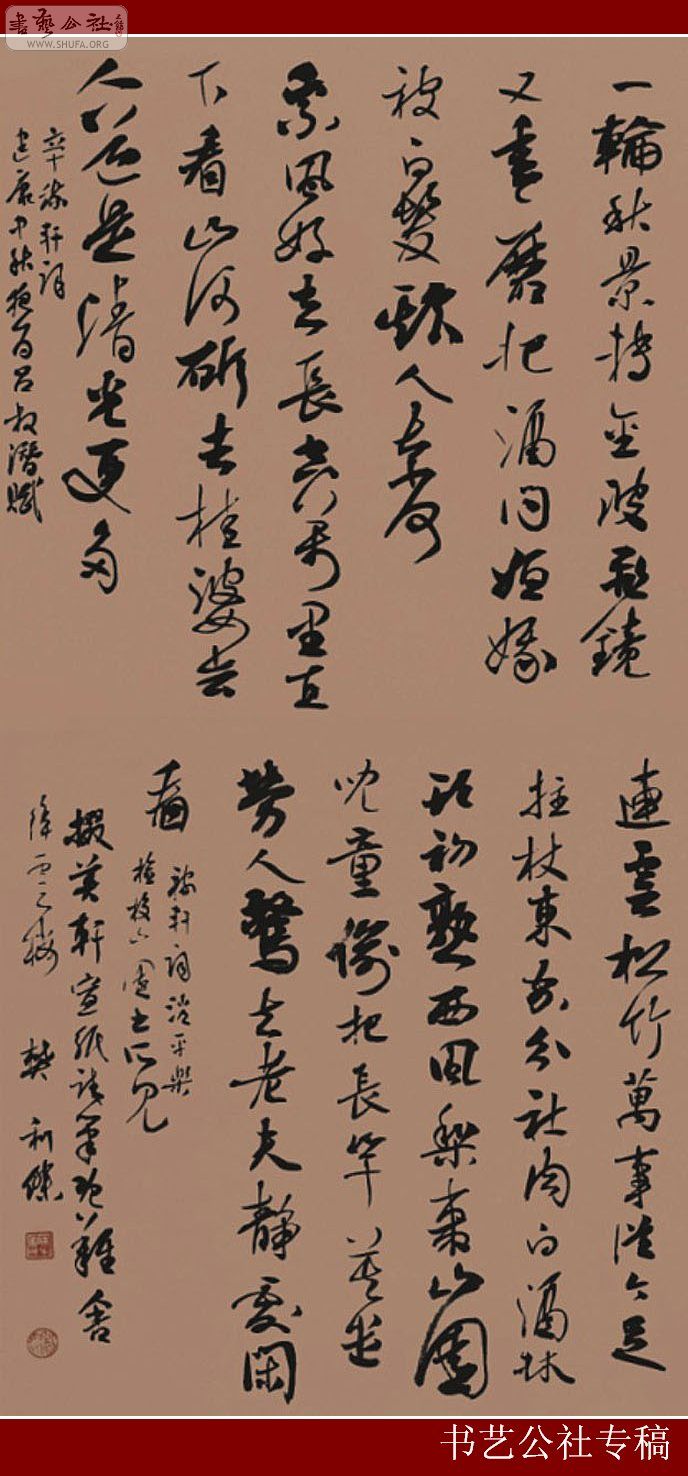 書藝公社
WWW.SHUFA.ORG
一輪秋景轉金波飛鏡
又重磨把酒问姮娥
被白髮欺人奈何
乘風好去長空萬里直
下看山河斫去桂婆娑
人道是清光更多
辛稼軒词
建康中秋夜为吕叔潛賦
連雲松竹萬事從今足
拄杖東家分社肉白酒牀
頭初熟西風梨棗山園
兒童偷把長竿莫遣
旁人驚去老夫靜處閑
看
稼軒词清平樂
檢校山園书所見
掇英軒宣紙
樊利傑
书艺公社专稿